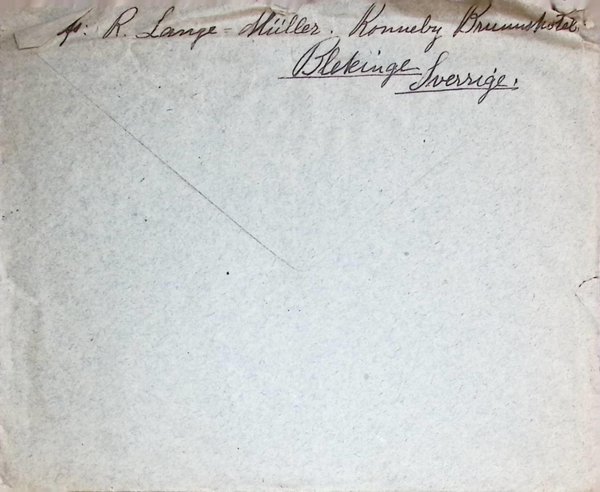 fr: R. Lange-Müller. Ronneby Brunnshotel
Blekinge
Sverrige.